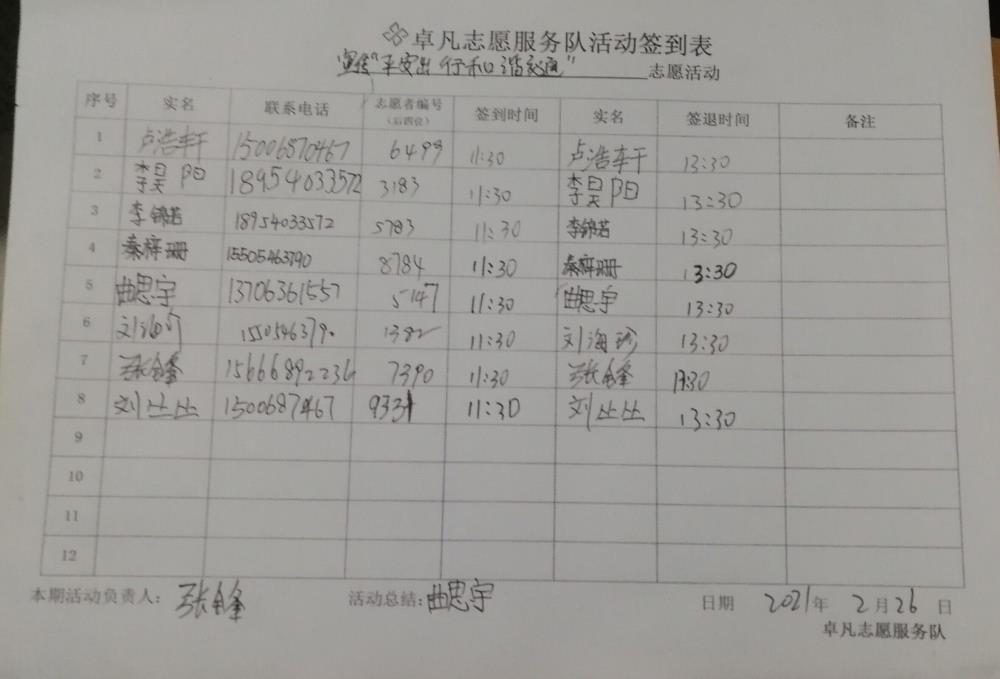 卓凡志愿服务队活动签到表
宣传"平安出行和谐交通"志愿活动
序号 实名 联系电话 志愿者编号(后四位) 签到时间 实名 签退时间 备注
1 卢浩轩 15006870467 6499 11:30 卢浩轩 13:30
2 李昊阳 18954033572 3183 11:30 李昊阳 13:30
3 李锦若 18954033572 5783 11:30 李锦若 13:30
4 秦梓珊 15505463790 8784 11:30 秦梓珊 13:30
5 曲思宇 13706361557 5147 11:30 曲思宇 13:30
6 刘海 1550546379 1382 11:30 刘海珍 13:30
7 张鑫 15666892236 7390 11:30 张鑫 13:30
8 刘丛丛 1500687467 9331 11:30 刘丛丛 13:30
9
10
11
12
本期活动负责人：张鑫 活动总结：曲思宇 日期 2021年2月26日
卓凡志愿服务队